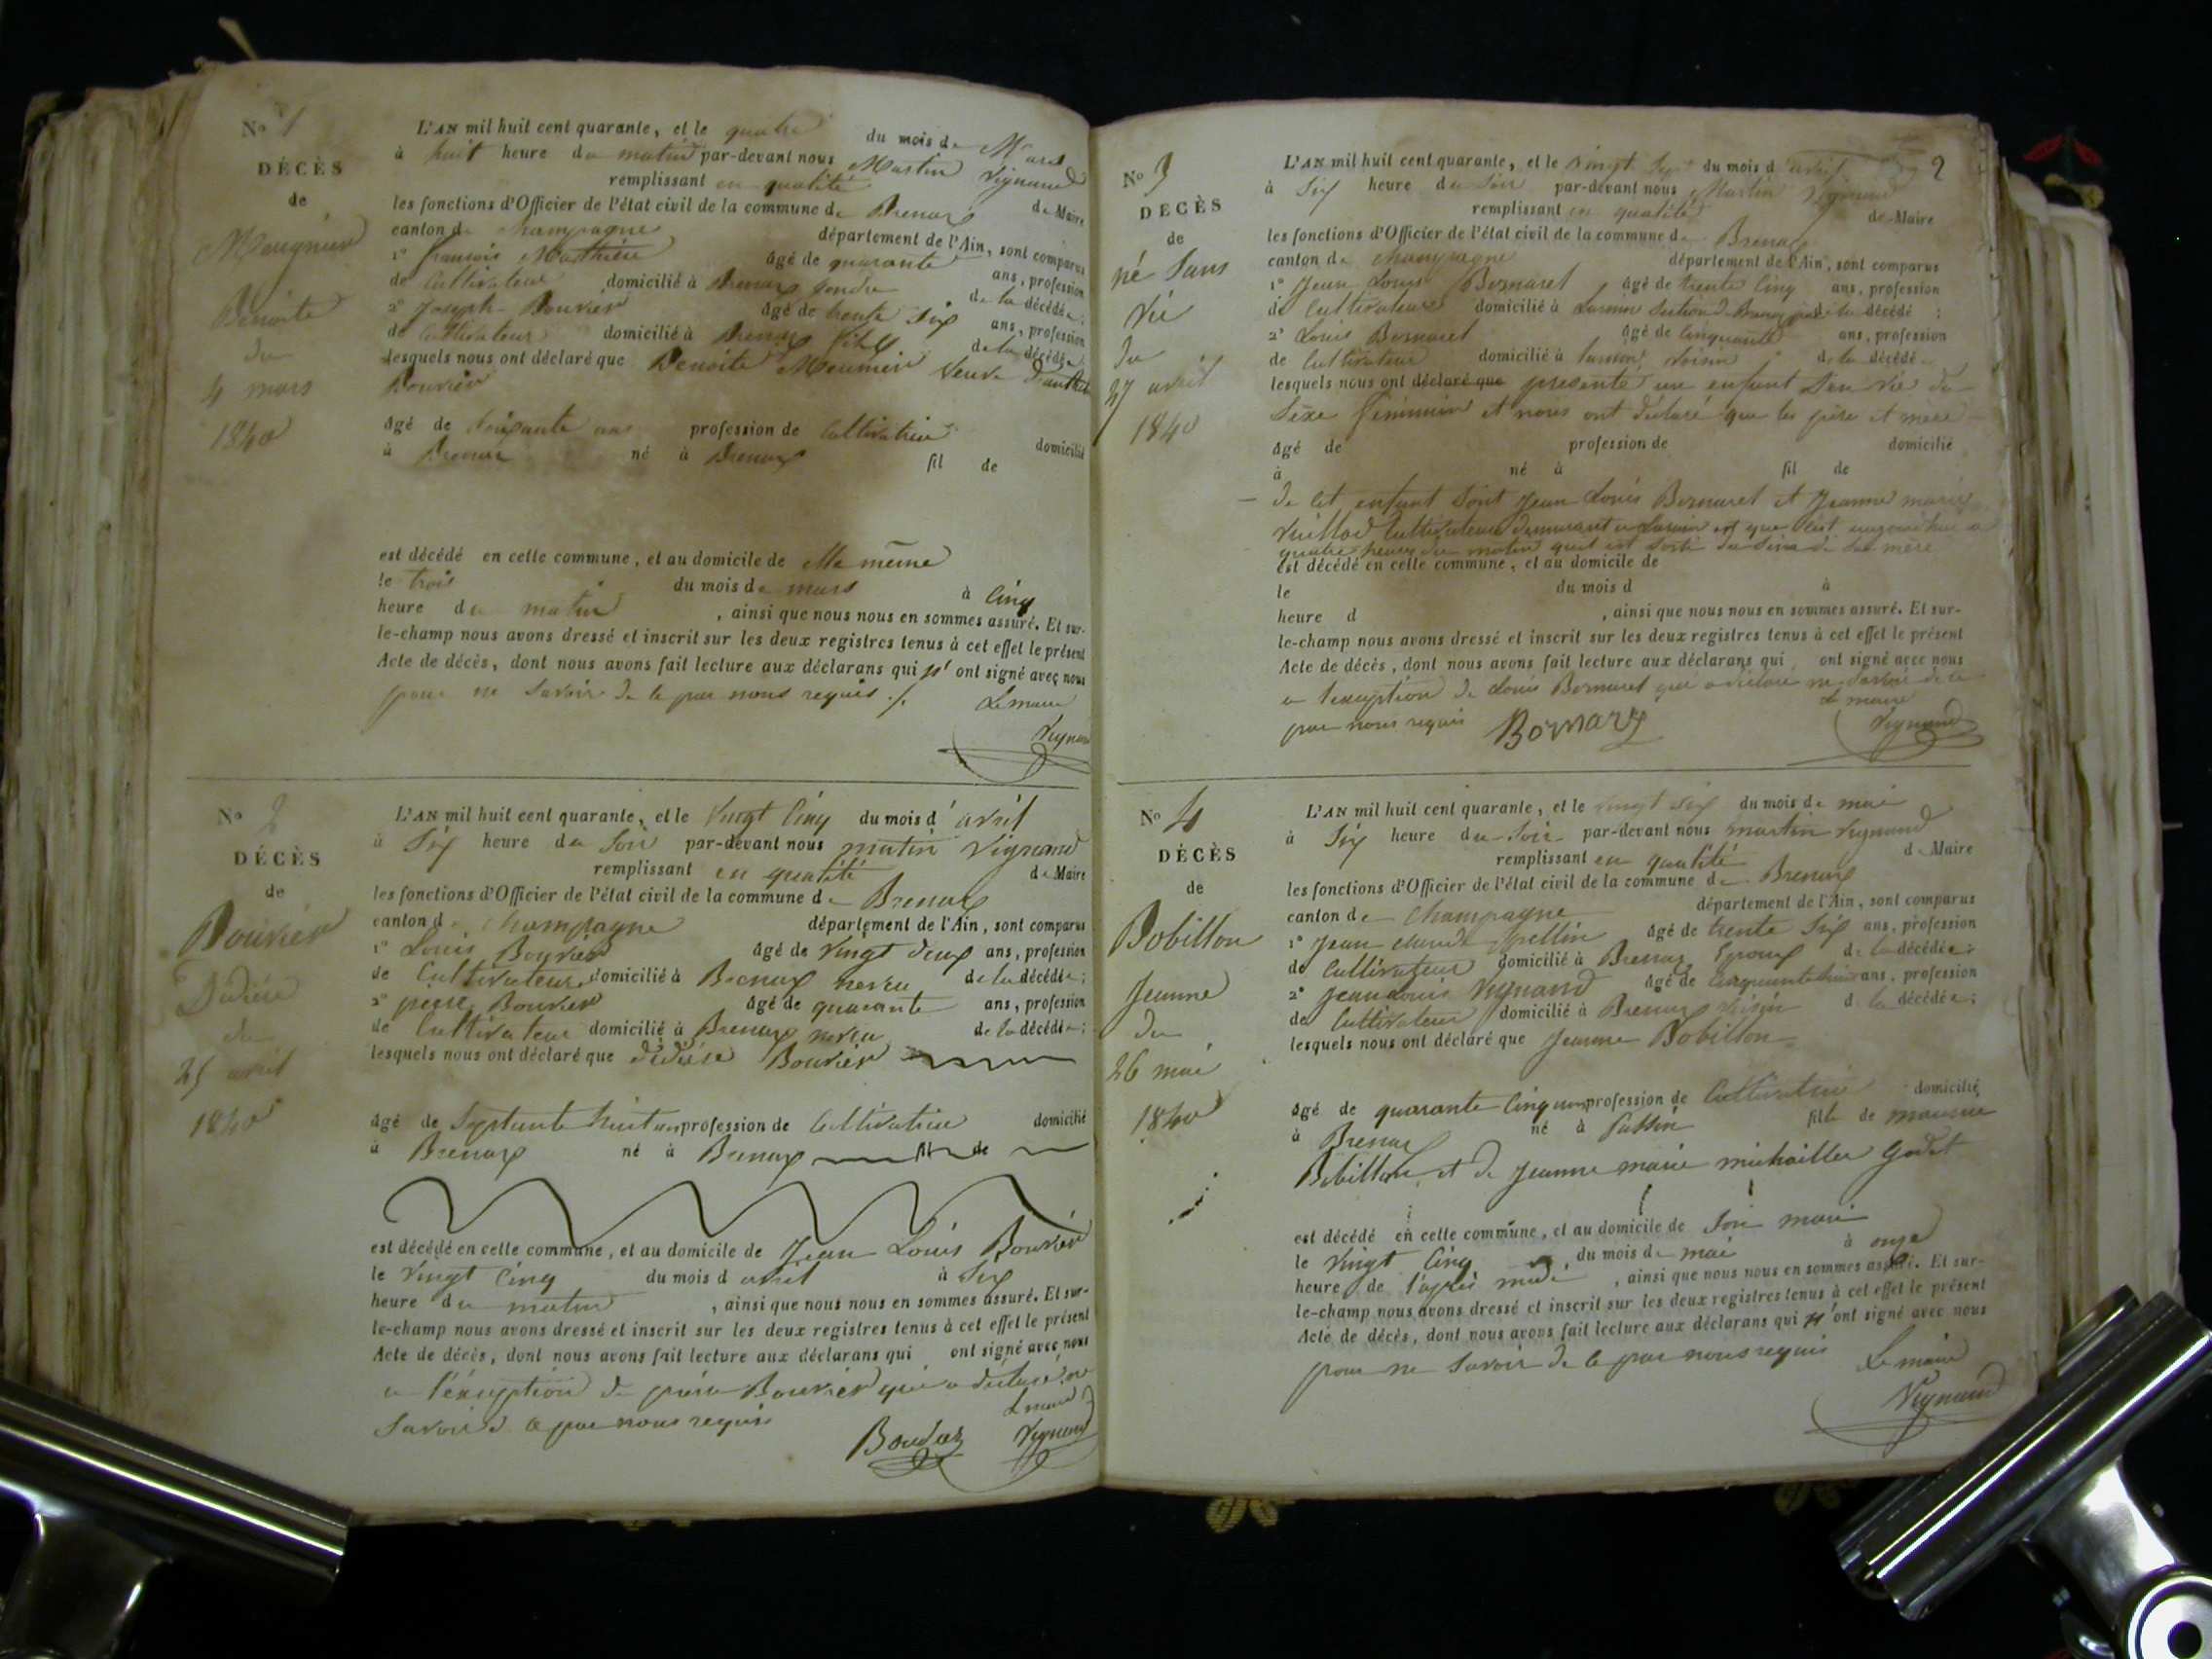 No 1
DÉCÈS
de
Meugnier
Benoite
du
4 mars
1840
L'AN mil huit cent quarante, et le quatre du mois de Mars
à huit heure du matin par-devant nous Martin Vignand
remplissant en qualité de Maire
les fonctions d'Officier de l'état civil de la commune de Brenaz
canton de Champagne département de l'Ain, sont comparus
1° françois Matthieu âgé de quarante ans, profession
de Cultivateur domicilié à Brenaz gendre de la décédée;
2° Joseph Bouvier âgé de trente Six ans, profession
de Cultivateur domicilié à Brenaz fils de la décédée;
lesquels nous ont déclaré que Benoite Meunier Veuve
Bouvier
âgé de Soixante ans profession de Cultivatrice domicilié
à Brenaz né à Brenaz fil de
est décédé en cette commune, et au domicile de elle même
le trois du mois de mars à Cinq
heure du matin, ainsi que nous nous en sommes assuré. Et sur-
le-champ nous avons dressé et inscrit sur les deux registres tenus à cet effet le présent
Acte de décès, dont nous avons fait lecture aux déclarans qui n'ont signé avec nous
pour ne Savoir de ce par nous requis ./. Le maire
Vignand
No 2
DÉCÈS
de
Bouvier
Didière
du
25 avril
1840
L'AN mil huit cent quarante, et le Vingt Cinq du mois d'avril
à Six heure du Soir par-devant nous martin Vignand
remplissant en qualité de Maire
les fonctions d'Officier de l'état civil de la commune de Brenaz
canton de Champagne département de l'Ain, sont comparus
1° Louis Bouvier âgé de Vingt deux ans, profession
de Cultivateur domicilié à Brenaz neveu de la décédée;
2° pierre Bouvier âgé de quarante ans, profession
de Cultivateur domicilié à Brenaz neveu de la décédée;
lesquels nous ont déclaré que didière Bouvier
âgé de Septante huit ans profession de Cultivatrice domicilié
à Brenaz né à Brenaz fil de
est décédé en cette commune, et au domicile de Jean Louis Bouvier
le Vingt Cinq du mois d avril à Six
heure du matin, ainsi que nous nous en sommes assuré. Et sur-
le-champ nous avons dressé et inscrit sur les deux registres tenus à cet effet le présent
Acte de décès, dont nous avons fait lecture aux déclarans qui ont signé avec nous
a l'éxception de pierre Bouvier qui a déclaré ne
Savoir d ce par nous requis Le maire
Vignand
2
No 3
DÉCÈS
de
né Sans
Vie
du
27 avril
1840
L'AN mil huit cent quarante, et le Vingt Sept du mois d'avril
à Six heure du Soir par-devant nous Martin Vignand
remplissant en qualité de Maire
les fonctions d'Officier de l'état civil de la commune de Brenaz
canton de Champagne département de l'Ain, sont comparus
1° Jean Louis Bornaret âgé de trente Cinq ans, profession
de Cultivateur domicilié à de la décédé;
2° Louis Bornaret âgé de Cinquante ans, profession
de Cultivateur domicilié à voisin de la décédé
lesquels nous ont déclaré que présenté un enfant San vie du
Sexe féminin et nous ont déclaré que les père et mère
âgé de profession de domicilié
à né à fil de
de Cet enfant Sont Jean Louis Bornaret et Jeanne marie
Cultivateurs demeurant a et que C'est aujourd'hui a
quatre heures du matin qu'il est Sorti du Sein de Sa mère
est décédé en cette commune, et au domicile de
le du mois d à
heure d, ainsi que nous nous en sommes assuré. Et sur-
le-champ nous avons dressé et inscrit sur les deux registres tenus à cet effet le présent
Acte de décès, dont nous avons fait lecture aux déclarans qui ont signé avec nous
a l'exception de Louis Bornaret qui a déclaré ne Savoir de ce
par nous requis Le maire
Vignand
No 4
DÉCÈS
de
Bobillon
Jeanne
du
26 mai
1840
L'AN mil huit cent quarante, et le Vingt Six du mois de mai
à Six heure du Soir par-devant nous martin Vignand
remplissant en qualité de Maire
les fonctions d'Officier de l'état civil de la commune de Brenaz
canton de Champagne département de l'Ain, sont comparus
1° Jean claude âgé de trente Six ans, profession
de Cultivateur domicilié à Brenaz Epoux de la décédée;
2° Jean Louis Vignand âgé de Cinquante ans, profession
de Cultivateur domicilié à Brenaz voisin de la décédée;
lesquels nous ont déclaré que Jeanne Bobillon
âgé de quarante Cinq ans profession de Cultivatrice domicilié
à Brenaz né à fille de
Bobillon et de Jeanne marie
est décédé en cette commune, et au domicile de Son mari
le Vingt Cinq du mois de mai à onze
heure de l'après midi, ainsi que nous nous en sommes assuré. Et sur-
le-champ nous avons dressé et inscrit sur les deux registres tenus à cet effet le présent
Acte de décès, dont nous avons fait lecture aux déclarans qui n'ont signé avec nous
pour ne Savoir de ce par nous requis Le maire
Vignand